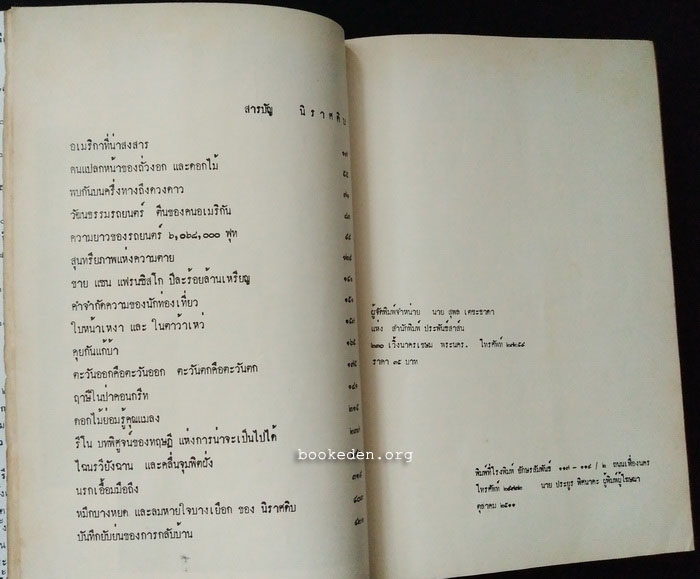 สารบัญ นิราศดิบ
อเมริกาที่น่าสงสาร ๑๗
คนแปลกหน้าของถั่วงอก และดอกไม้
พบกันบนครึ่งทางถึงดวงดาว
วัฒนธรรมรถยนตร์ ตีนของคนอเมริกัน
ความยาวของรถยนตร์ ๖,๑๖๘,๐๐๐ ฟุท
สุนทรียภาพแห่งความตาย
ขาย แซน แฟรนซิสโก ปีละร้อยล้านเหรียญ
คำจำกัดความของนักท่องเที่ยว
ใบหน้าเหงา และ ในดาว้าเหว่
คุยกันแก้บ้า
ตะวันออกคือตะวันออก ตะวันตกคือตะวันตก
ฤาษีในป่าคอนกรีท
ดอกไม้ย่อมรู้คุณแมลง
รีโน บทพิศูจน์ของทฤษฎี แห่งการน่าจะเป็นไปได้
ไฉนรวียังฉาน และคลื่นจุมพิตฝั่ง
นรกเอื้อมมือถึง
หมึกบางหยด และลมหายใจบางเยือก ของ นิราศดิบ
บันทึกยับย่นของการกลับบ้าน
ผู้จัดพิมพ์จำหน่าย นาย สุพล เตชะธาดา
แห่ง สำนักพิมพ์ ประพันธ์สาส์น
๒๓๐ เวิ้งนาครเขษม พระนคร. โทรศัพท์
ราคา ๓๕ บาท
bookeden.org
พิมพ์ที่โรงพิมพ์ อักษรสัมพันธ์ ๑๑๗ - ๑๑๙ / ๒ ถนนเฟื่องนคร
โทรศัพท์ นาย ประยูร พิศนาคะ ผู้พิมพ์ผู้โฆษณา
ตุลาคม ๒๕๑๑